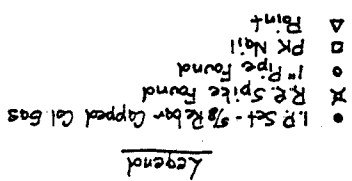 Legend
● I.P. Set - 5/8 Rebar Capped Col. Eas
R.R. Spike Found
○ 1" Pipe Found
□ PK Nail
△ Point